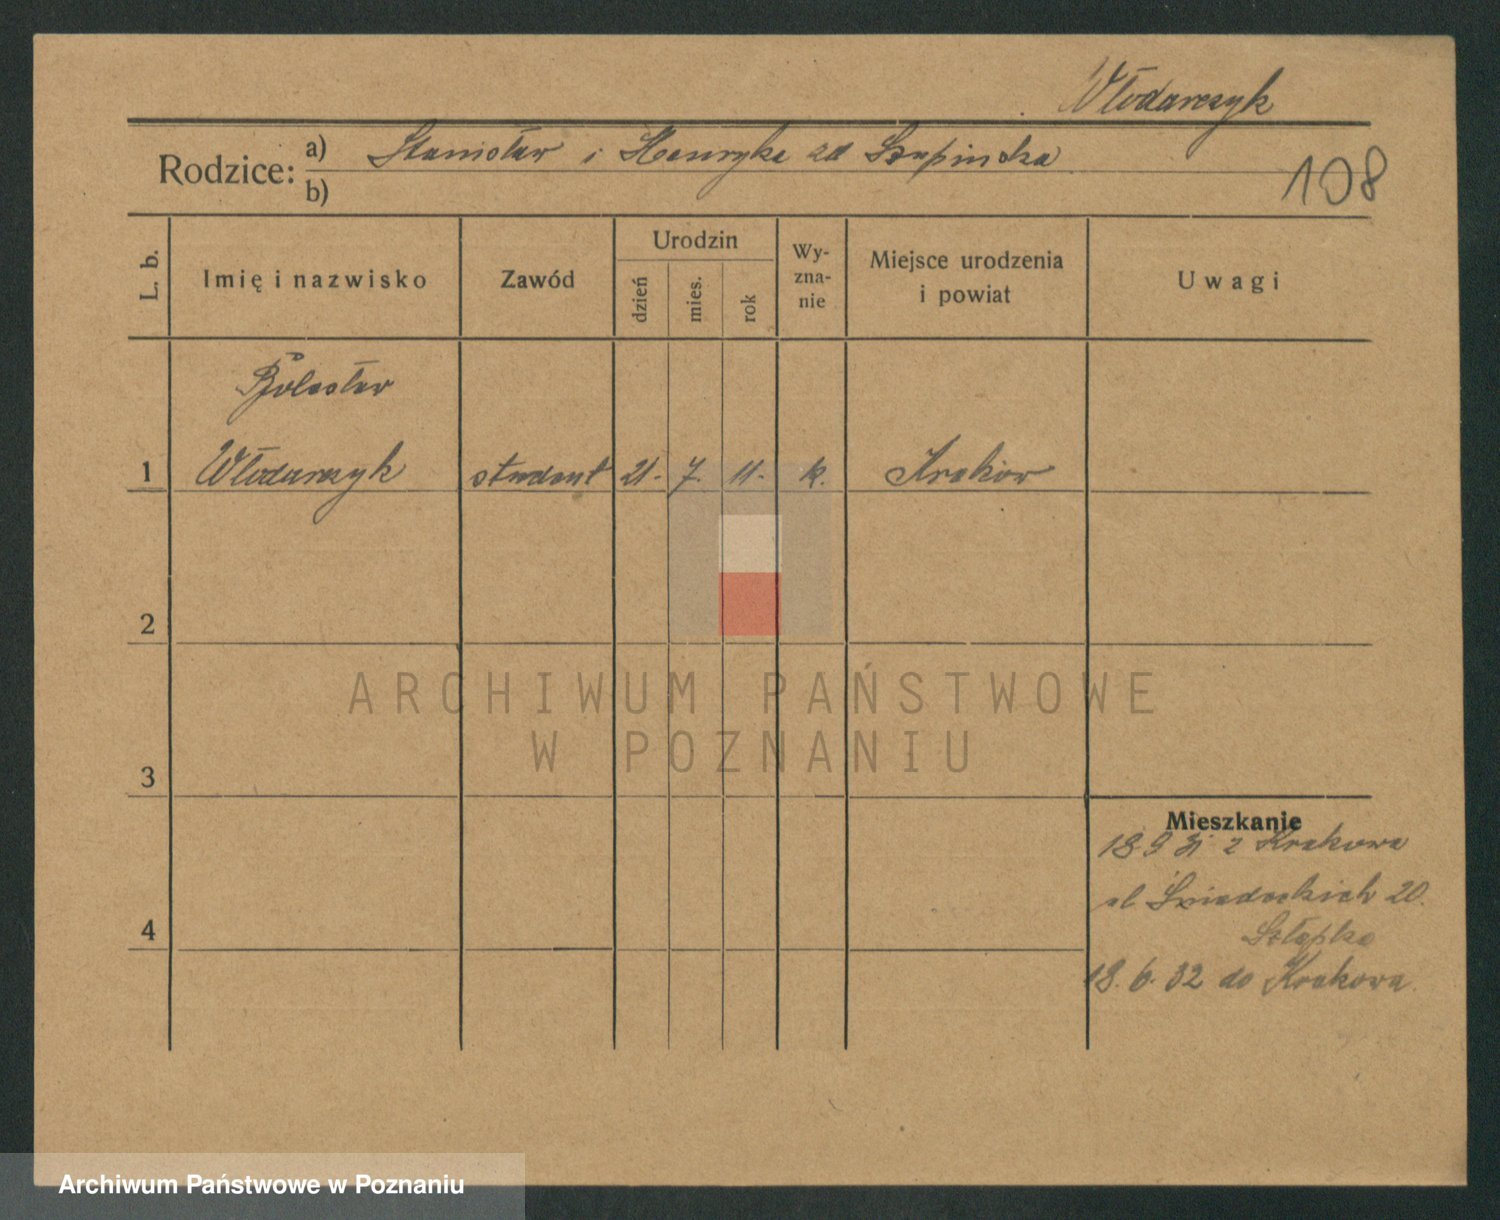 Włodarczyk
Rodzice: a) Stanisław i Henryka zd Szupińska
b)
108
L. b.
Imię i nazwisko
Zawód
Urodzin
dzień
mies.
rok
Wy-
zna-
nie
Miejsce urodzenia
i powiat
Uwagi
Bolesław
1 Włodarczyk student 21. 7. 11. k. Kraków
2
ARCHIWUM PAŃSTWOWE
W POZNANIU
3
Mieszkanie
18 9 31 z Krakowa
ul Śniadeckich 20.
4
18. 6. 32 do Krakowa.
Archiwum Państwowe w Poznaniu